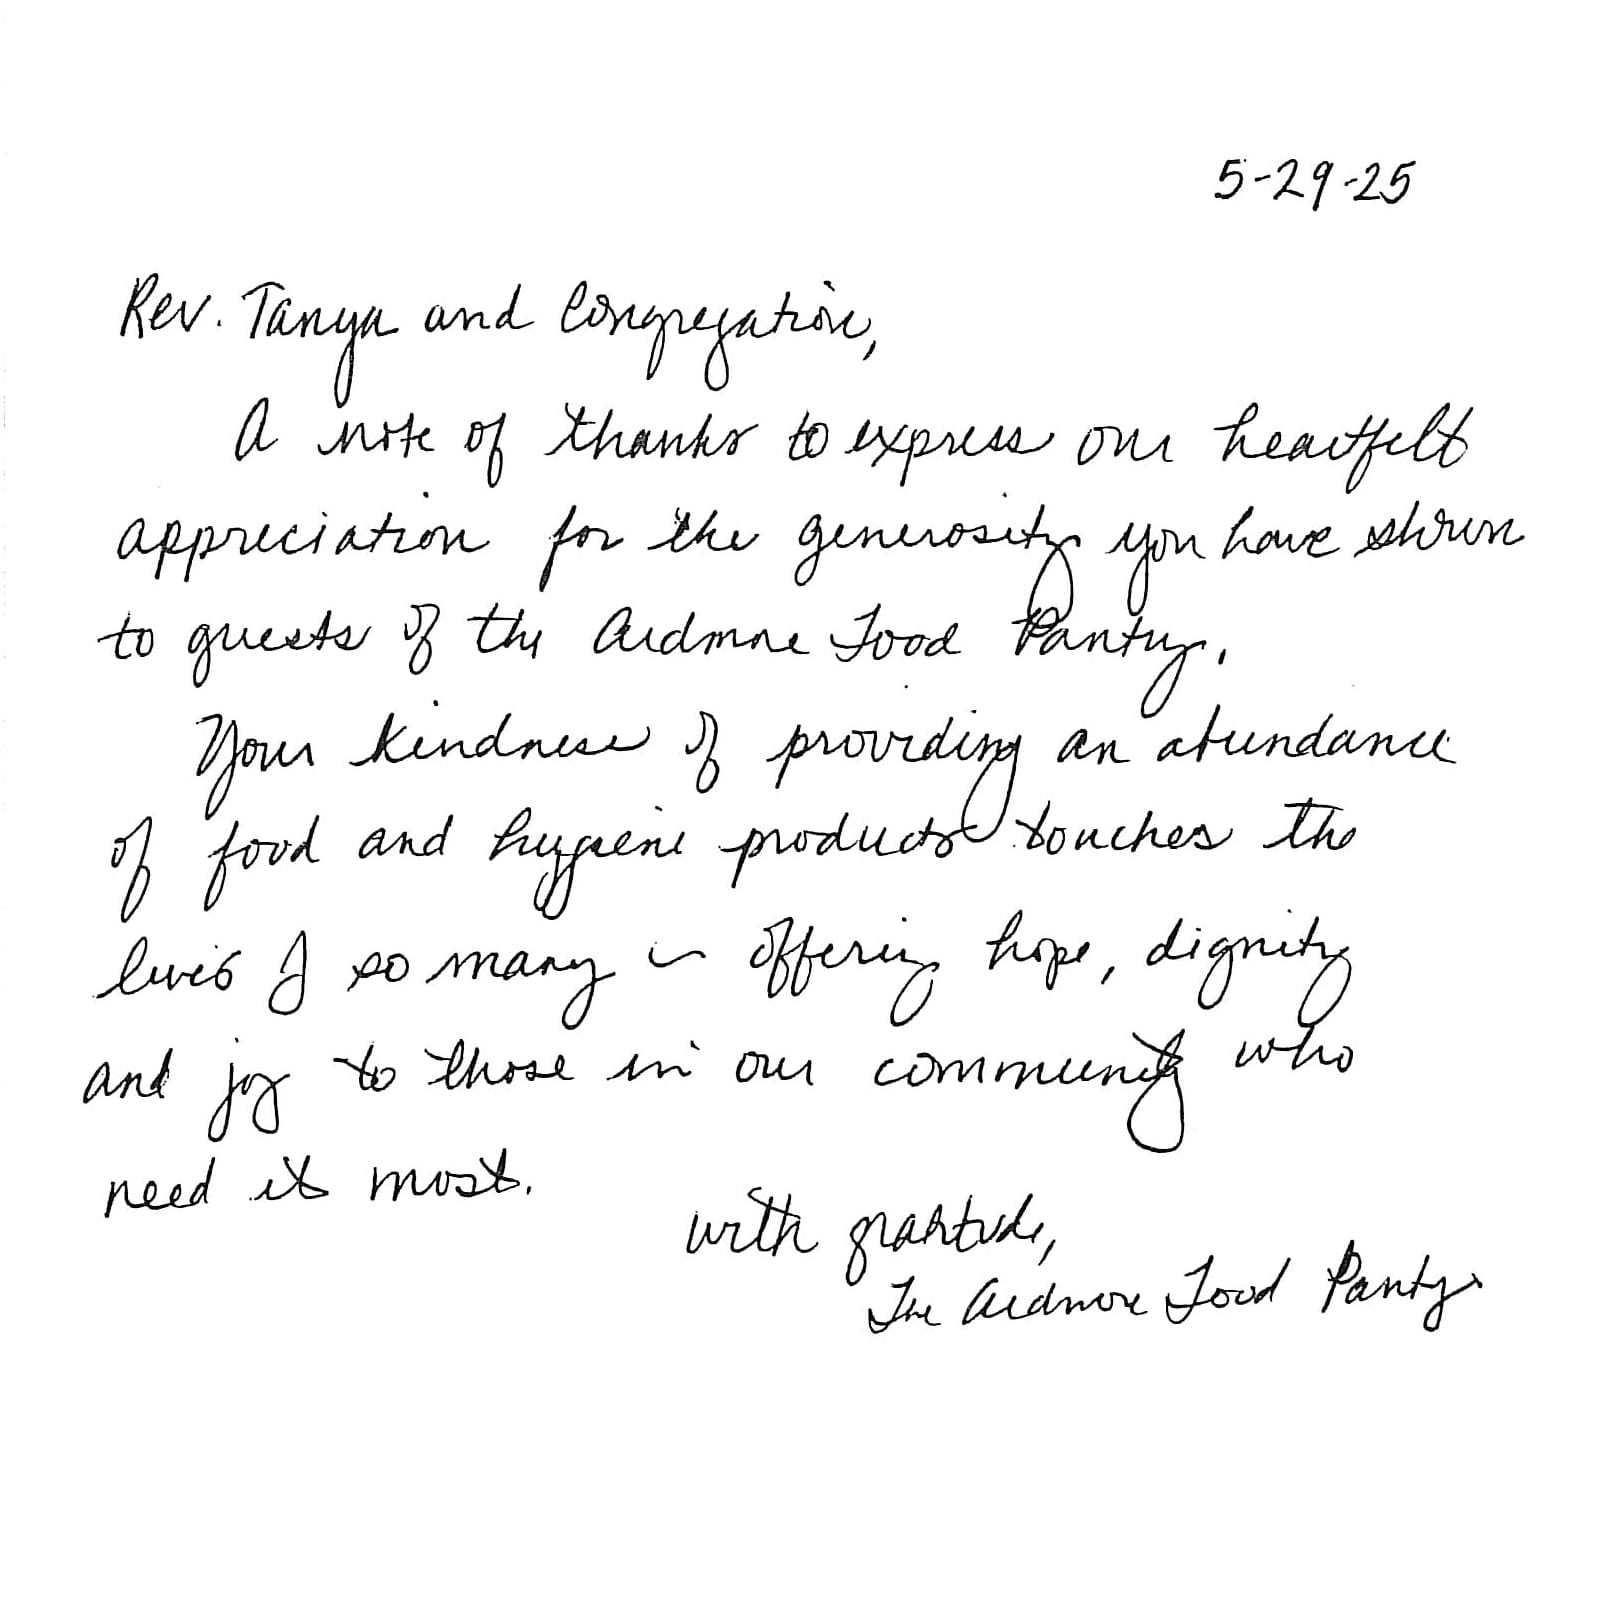 5-29-25
Rev. Tanya and Congregation,
A note of thanks to express our heartfelt
appreciation for the generosity you have shown
to guests of the Ardmore Food Pantry.
Your kindness of providing an abundance
of food and hygiene products touches the
lives of so many in offering hope, dignity
and joy to those in our community who
need it most.
with gratitude,
The Ardmore Food Pantry